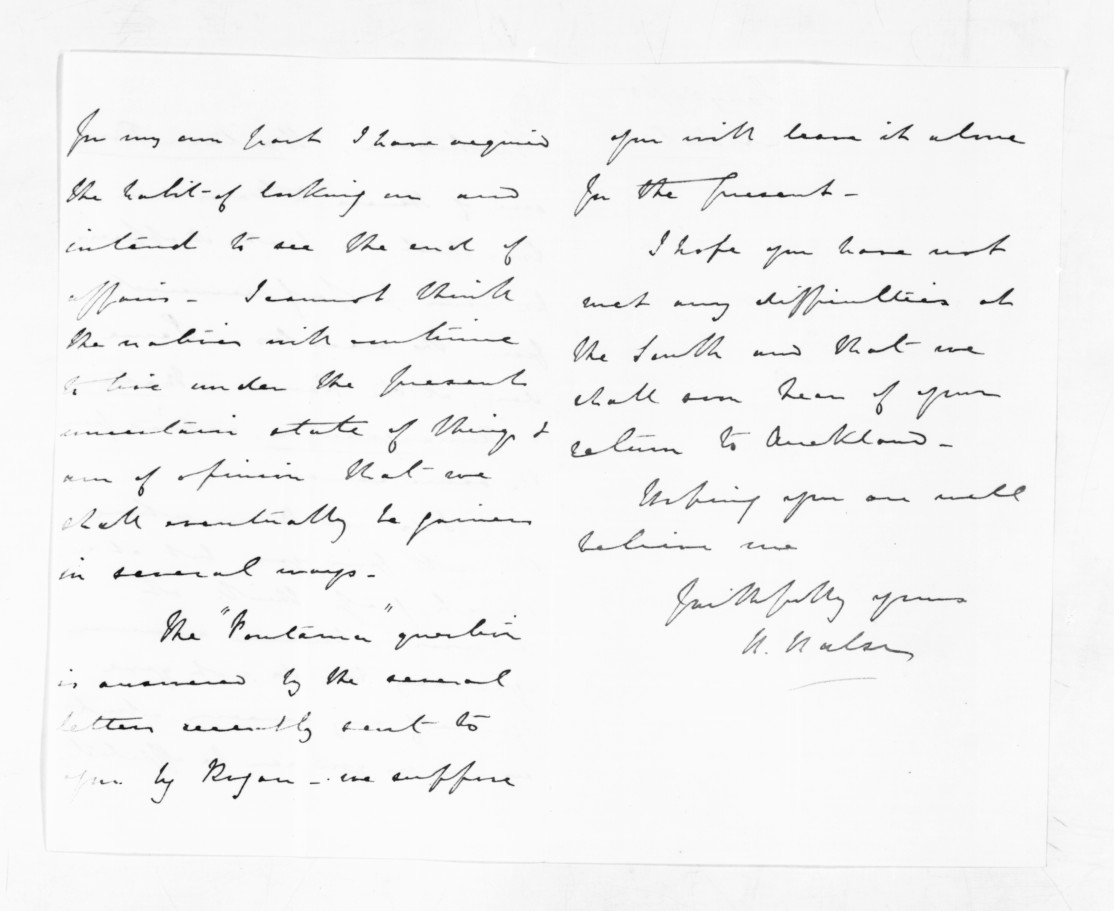 For my own part I have acquired
the habit of looking on and
intend to see the end of
affairs - I cannot think
the natives will continue
to live under the present
uncertain state of things &
am of opinion that we
shall eventually be gainers
in several ways -
The " " question
is answered by the several
letters recently sent to
you by Rogan - we suppose
you will leave it alone
for the present -
I hope you have not
met any difficulties at
the South and that we
shall soon hear of your
return to Auckland -
Hoping you are well
believe me
Faithfully yours
H. Halse